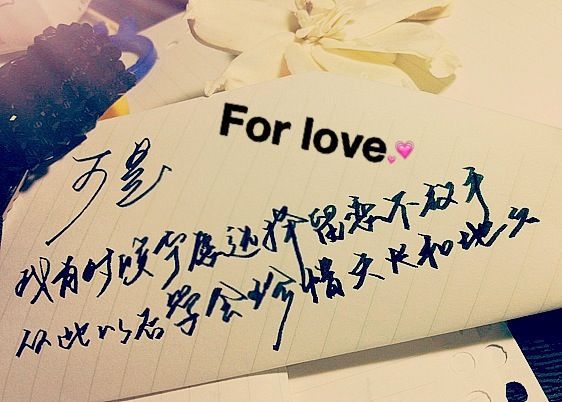 For love
可是
我有时候宁愿选择留恋不放手
从此以后学会珍惜天长和地久